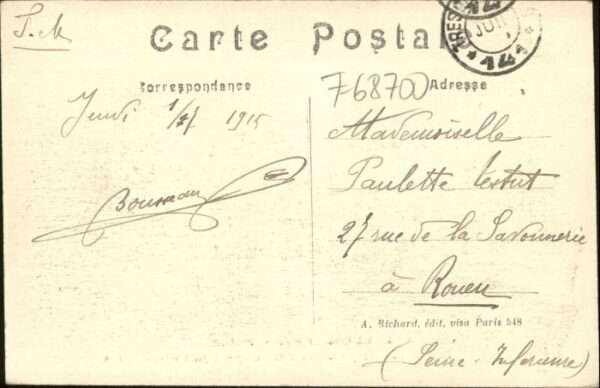 F. M
Carte Postale
Correspondance
Adresse
768700
Jeudi 1/7 1915
Mademoiselle
Paulette Testut
27 rue de la Savonnerie
à Rouen
A. Richard, édit. visa Paris 548
(Seine-Inférieure)
Bousseau
JUIL
* 141 *